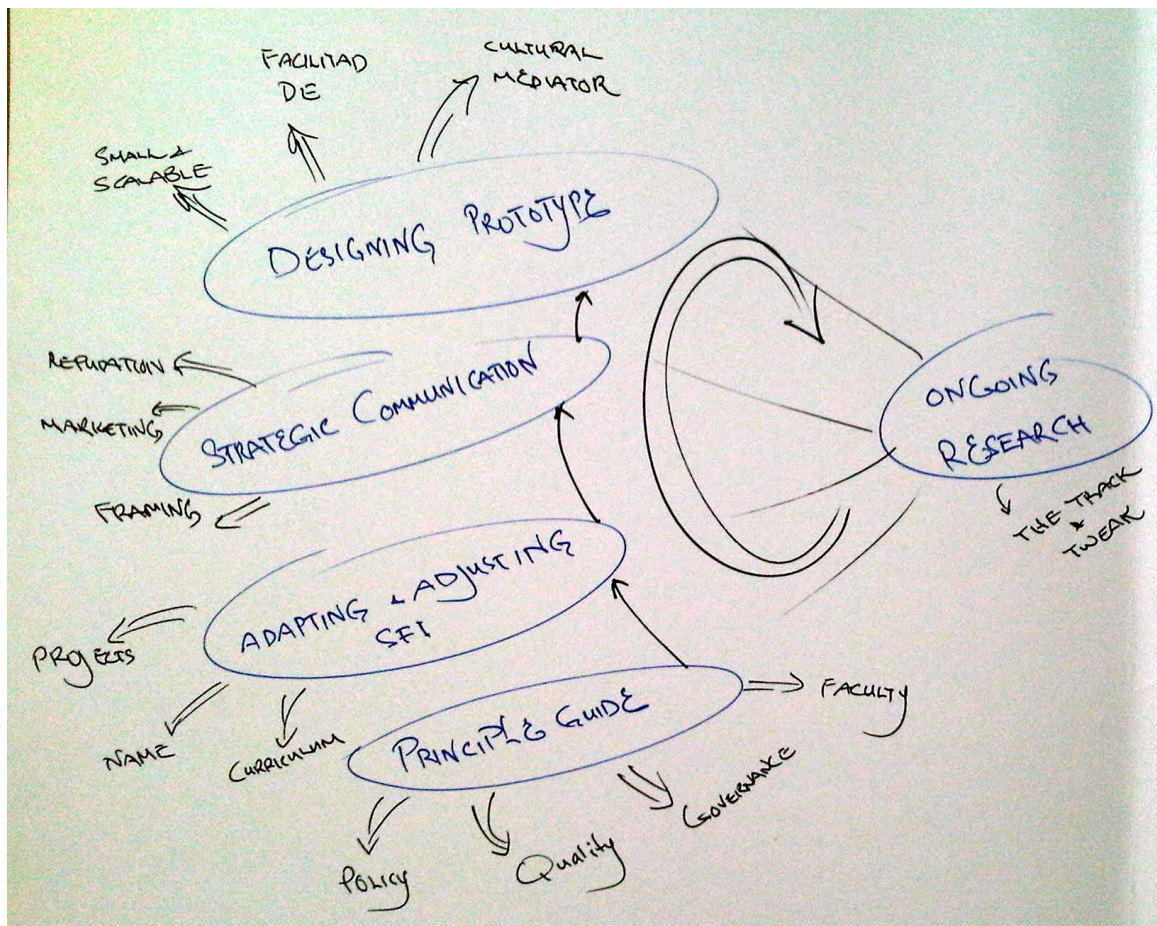 FACILITAD
DE
CULTURAL
MEDIATOR
SMALL &
SCALABLE
DESIGNING PROTOTYPE
REPUTATION
MARKETING
FRAMING
STRATEGIC COMMUNICATION
ONGOING
RESEARCH
THE TRACK
&
TWEAK
ADAPTING & ADJUSTING
SFI
PROJECTS
NAME
CURRICULUM
PRINCIPLE GUIDE
FACULTY
GOVERNANCE
Quality
POLICY